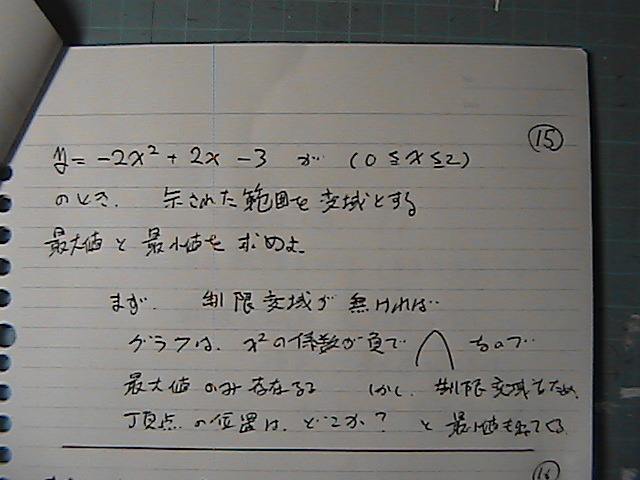 ⑮
y = -2x² + 2x - 3 が (0 ≦ x ≦ 2)
のとき. 示された範囲を変域とする
最大値と最小値を求めよ.
まず. 制限変域が無ければ…
グラフは. x²の係数が負で ⋂ なので…
最大値のみ存在する しかし. 制限変域なため,
頂点の位置は. どこか? と最小値も出てくる.
⑯